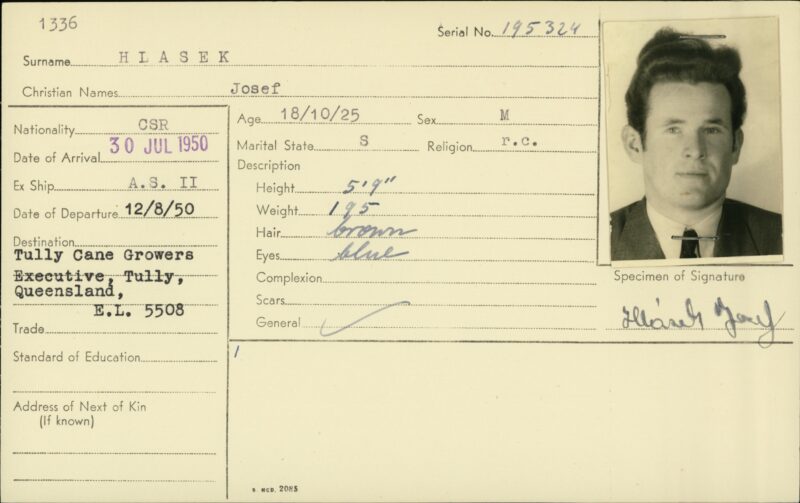 1336
Serial No. 195324
Surname HLASEK
Christian Names Josef
Nationality CSR
Date of Arrival 30 JUL 1950
Ex Ship A.S. II
Date of Departure 12/8/50
Destination
Tully Cane Growers
Executive, Tully,
Queensland,
E.L. 5508
Trade
Standard of Education
Address of Next of Kin
(If known)
Age 18/10/25 Sex M
Marital State S Religion r.c.
Description
Height 5'9"
Weight 195
Hair brown
Eyes blue
Complexion
Scars
General
Specimen of Signature
Hlásek Josef
S. MCD. 2085